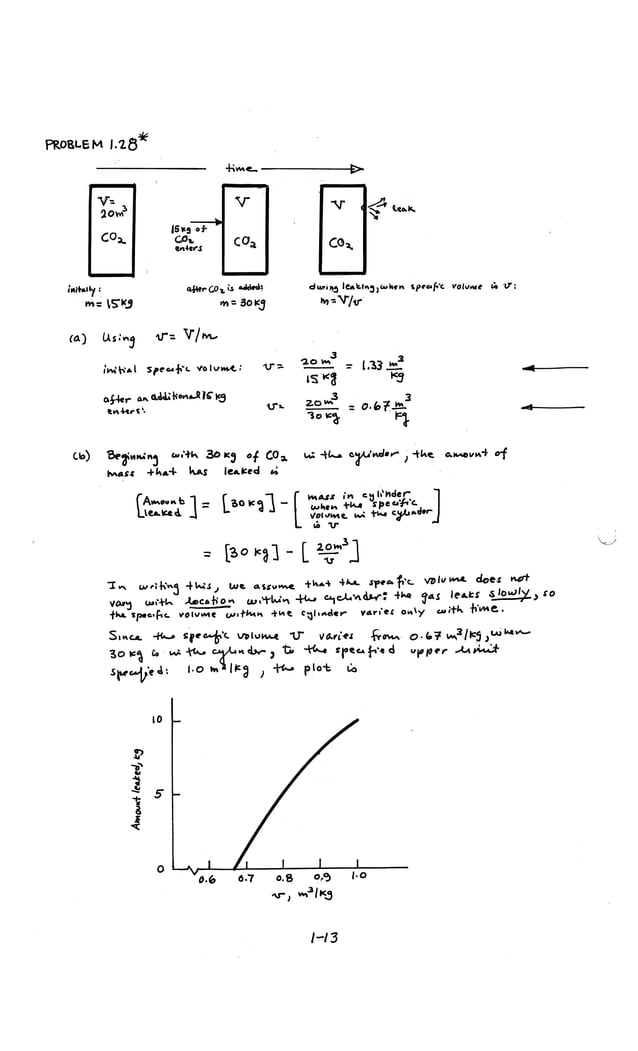 PROBLEM 1.28*
time
V= 20m³ CO₂
15 kg of CO₂ enters
V CO₂
V CO₂
leak
initally: m = 15 kg
after CO₂ is added: m = 30 kg
during leaking, when specific volume is v: m = V/v
(a) Using v = V/m
initial specific volume: v = 20 m³ / 15 kg = 1.33 m³/kg
after an additional 15 kg enters: v = 20 m³ / 30 kg = 0.67 m³/kg
(b) Beginning with 30 kg of CO₂ in the cylinder, the amount of
mass that has leaked is
[Amount leaked] = [30 kg] - [mass in cylinder when the specific volume in the cylinder is v]
= [30 kg] - [20m³ / v]
In writing this, we assume that the specific volume does not
vary with location within the cyclinder: the gas leaks slowly, so
the specific volume within the cylinder varies only with time.
Since the specific volume v varies from 0.67 m³/kg, when
30 kg is in the cylinder, to the specified upper limit
specified: 1.0 m³/kg, the plot is
Amount leaked, kg
10
5
0
0.6 0.7 0.8 0.9 1.0
v, m³/kg
1-13